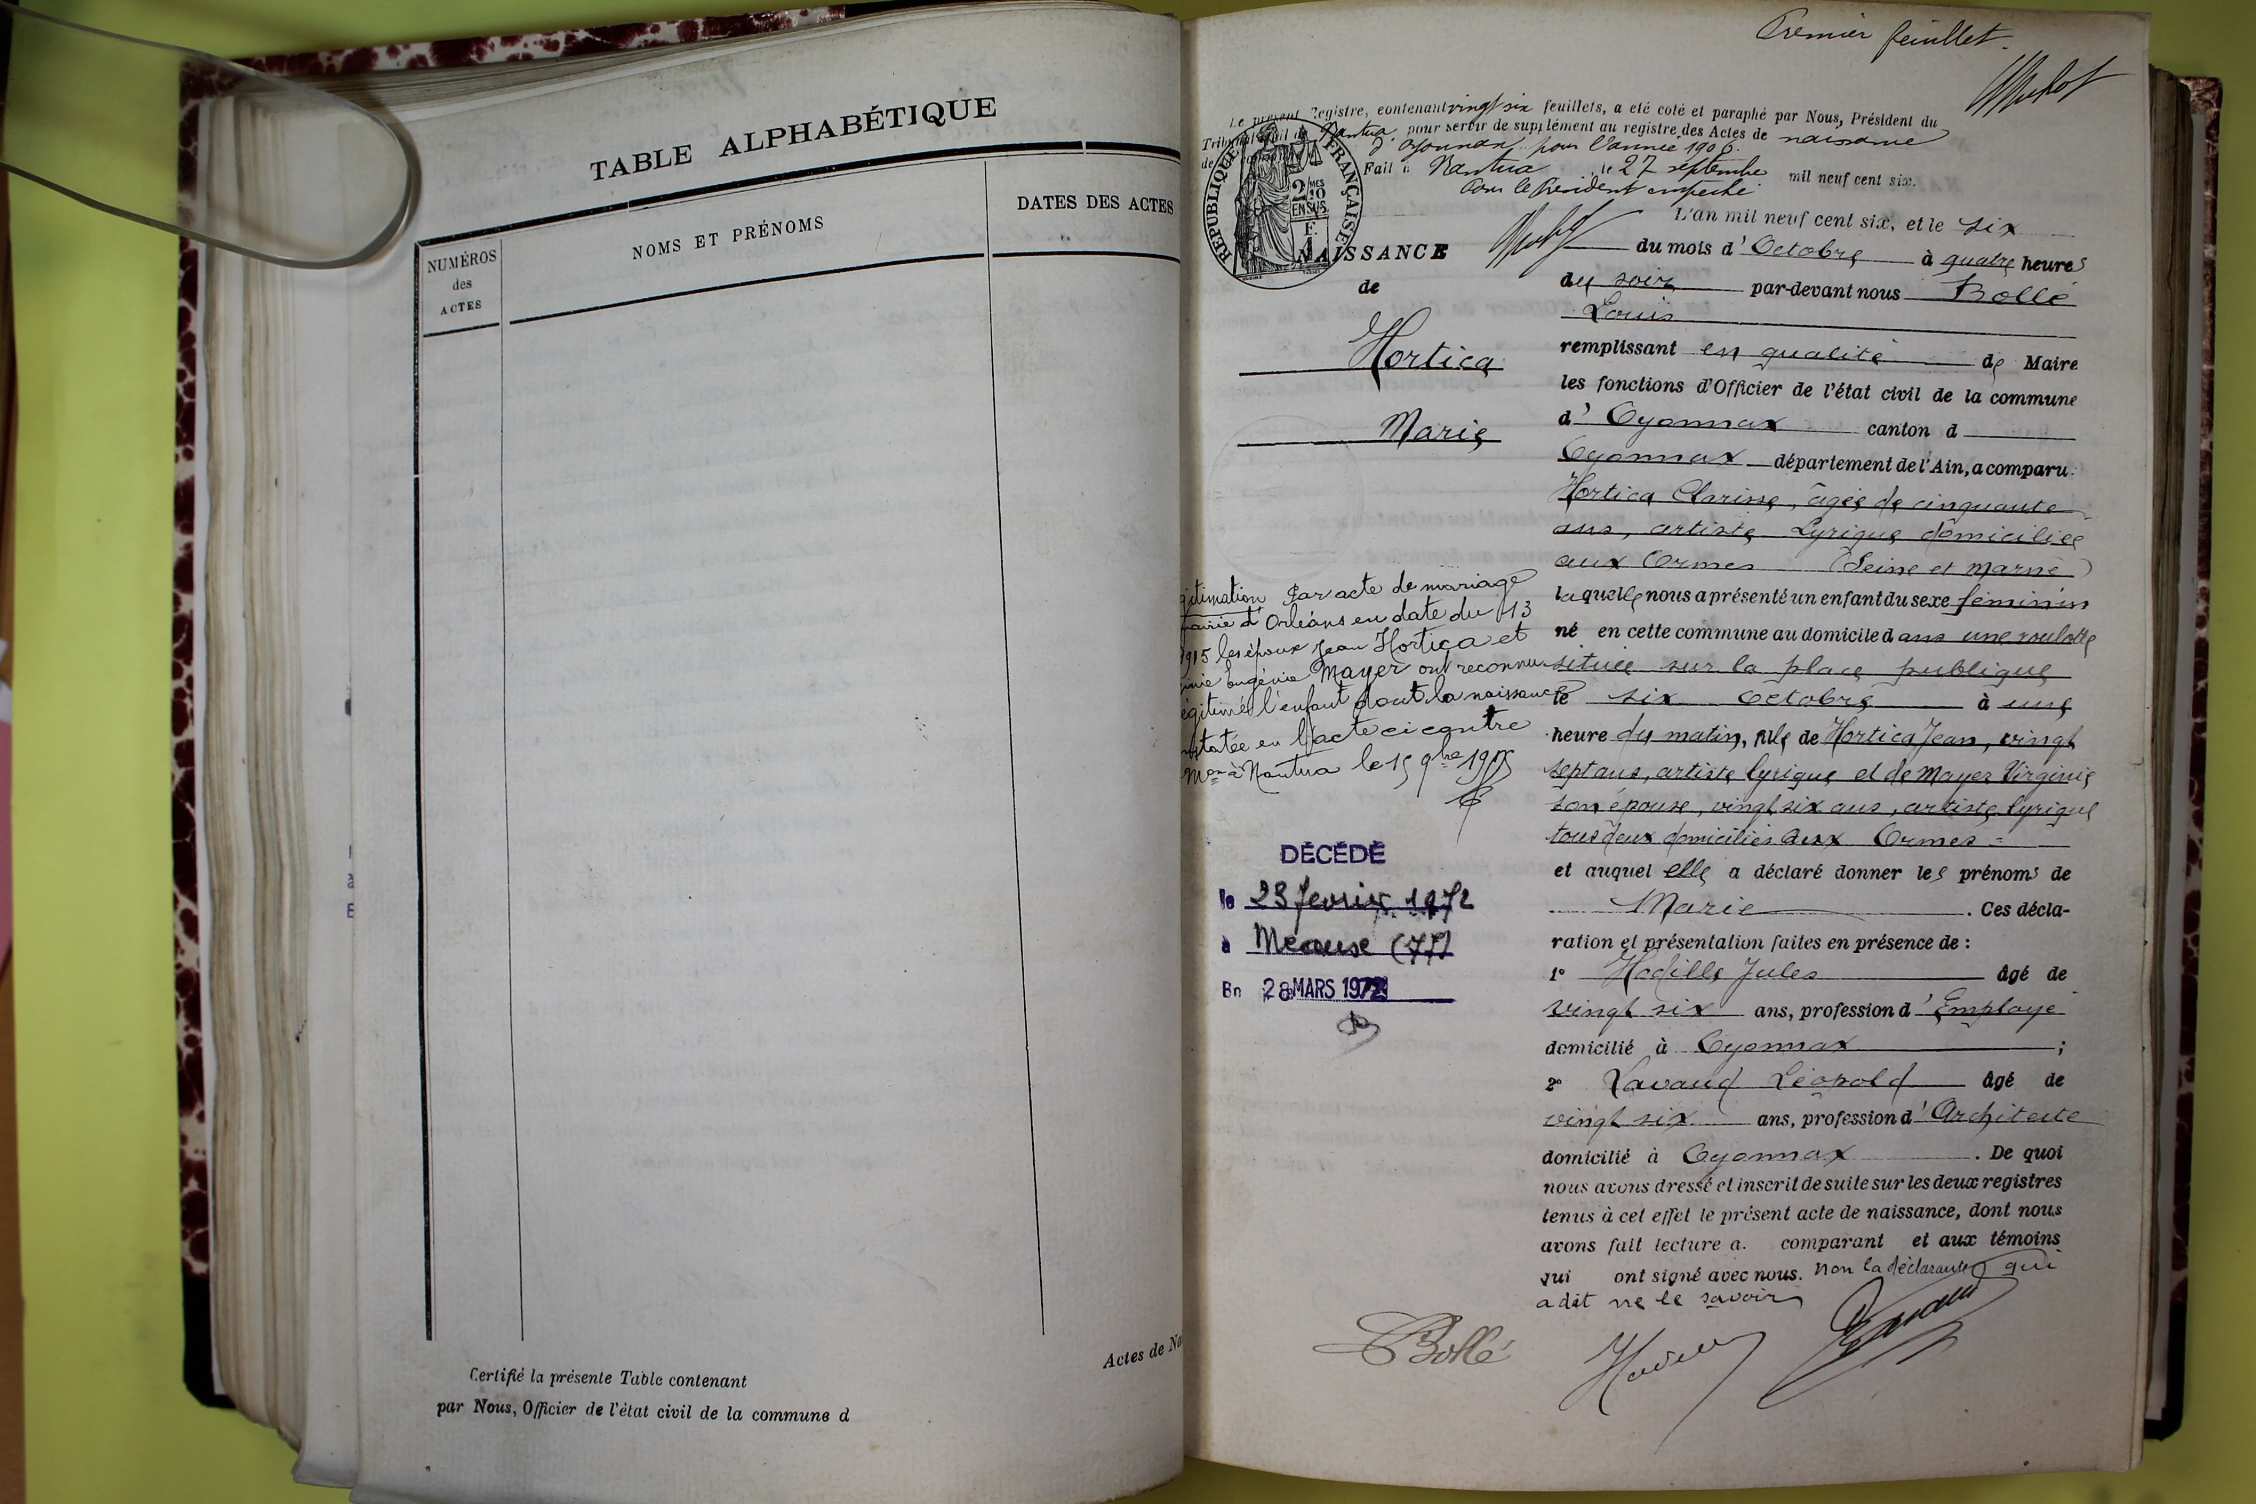 TABLE ALPHABÉTIQUE
NUMÉROS
des
ACTES
NOMS ET PRÉNOMS
DATES DES ACTES
Certifié la présente Table contenant
par Nous, Officier de l'état civil de la commune d
Actes de Na
Premier feuillet.
Le présent Registre, contenant vingt six feuillets, a été coté et paraphé par Nous, Président du
Tribunal civil de Nantua, pour servir de supplément au registre des Actes de naissance
d'Oyonnax pour l'année 1906.
Fait à Nantua, le 27 septembre mil neuf cent six.
Pour le Président empêché
RÉPUBLIQUE FRANÇAISE
NAISSANCE
de
Hortica
Marie
L'an mil neuf cent six, et le six
du mois d'Octobre à quatre heures
du soir par-devant nous Bollé
Louis
remplissant en qualité de Maire
les fonctions d'Officier de l'état civil de la commune
d'Oyonnax canton d
Oyonnax département de l'Ain, a comparu:
Hortica Clarisse, âgée de cinquante
ans, artiste Lyrique domiciliée
aux Ormes (Seine et Marne)
laquelle nous a présenté un enfant du sexe féminin
né en cette commune au domicile dans une roulotte
située sur la place publique
le six Octobre à une
heure du matin, fille de Hortica Jean, vingt
sept ans, artiste lyrique et de Mayer Virginie
son épouse, vingt six ans, artiste lyrique
tous deux domiciliés aux Ormes
et auquel elle a déclaré donner les prénoms de
Marie. Ces décla-
ration et présentation faites en présence de :
1° Hodille Jules âgé de
vingt six ans, profession d'Employé
domicilié à Oyonnax ;
2° Lavaud Léopold âgé de
vingt six ans, profession d'Architecte
domicilié à Oyonnax. De quoi
nous avons dressé et inscrit de suite sur les deux registres
tenus à cet effet le présent acte de naissance, dont nous
avons fait lecture a. comparant et aux témoins
qui ont signé avec nous. Non la déclarante qui
a dit ne le savoir
gitimation Par acte de mariage
mairie d'Orléans en date du 13
1915 les époux Jean Hortica et
inie Eugénie Mayer ont reconnu
égitimé l'enfant dont la naissance
nstatée en l'acte ci contre
Mon à Nantua le 15 9bre 1915
DÉCÉDÉ
le 23 fevrier 1972
à Meause (77)
En 28 MARS 1972
Bollé